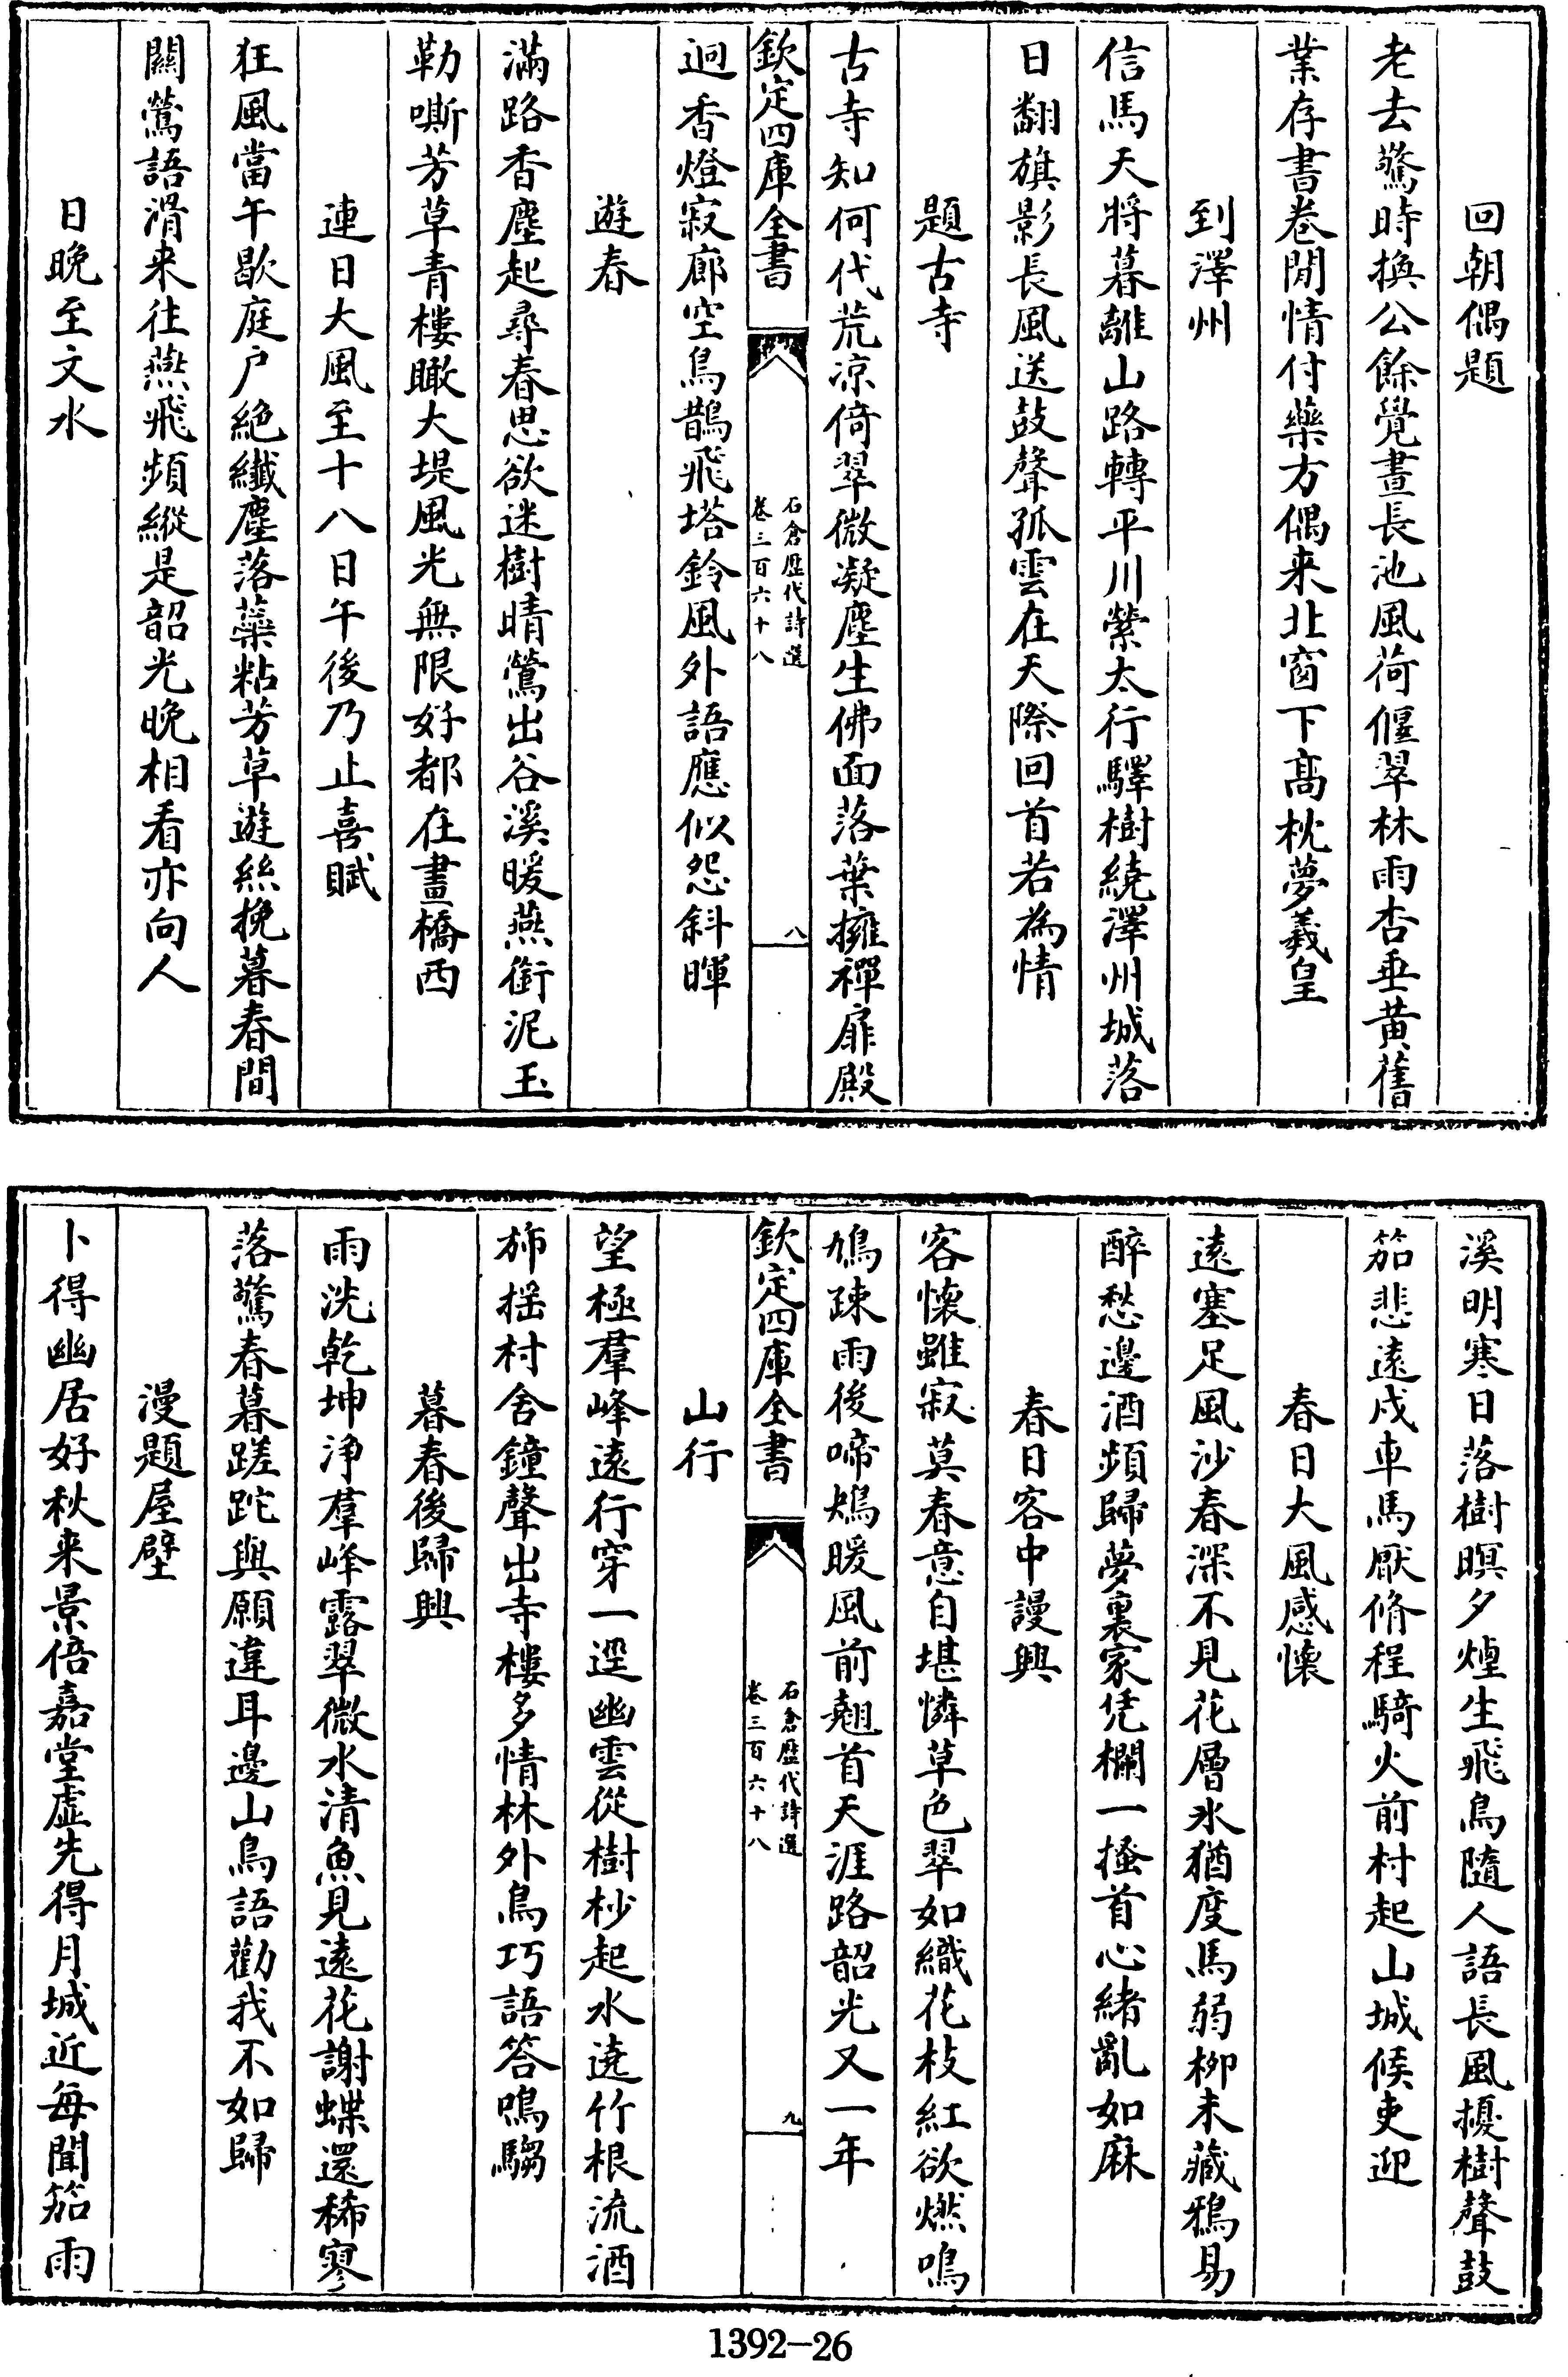 回朝偶題
老去驚時換公餘覺晝長池風荷偃翠林雨杏垂黄舊
業存書卷閒情付藥方偶来北窗下髙枕夢羲皇
到澤州
信馬天將暮離山路轉平川縈太行驛樹繞澤州城落
日翻旗影長風送鼓聲孤雲在天際回首若為情
題古寺
古寺知何代荒凉倚翠微凝塵生佛面落葉擁禪扉殿
欽定四庫全書
石倉歴代詩選
卷三百六十八
八
迥香燈寂廊空鳥鵲飛塔鈴風外語應似怨斜暉
遊春
滿路香塵起尋春思欲迷樹晴鶯出谷溪暖燕銜泥玉
勒嘶芳草青樓瞰大堤風光無限好都在畫橋西
連日大風至十八日午後乃止喜賦
狂風當午歇庭户絶纖塵落蘂粘芳草遊絲挽暮春間
關鶯語滑来往燕飛頻縱是韶光晚相看亦向人
日晚至文水
溪明寒日落樹暝夕煙生飛鳥隨人語長風擾樹聲鼓
笳悲遠戍車馬厭脩程騎火前村起山城候吏迎
春日大風感懷
遠塞足風沙春深不見花層氷猶度馬弱栁未藏鴉易
醉愁邊酒頻歸夢裏家凭欄一搔首心緒亂如麻
春日客中謾興
客懷雖寂莫春意自堪憐草色翠如織花枝紅欲燃鳴
鳩疎雨後啼鴂暖風前翹首天涯路韶光又一年
欽定四庫全書
石倉歴代詩選
卷三百六十八
九
山行
望極羣峰遠行穿一逕幽雲從樹杪起水遶竹根流酒
斾揺村舍鐘聲出寺樓多情林外鳥巧語答鳴騶
暮春後歸興
雨洗乾坤浄羣峰露翠微水清魚見遠花謝蝶還稀寥
落驚春暮蹉跎與願違耳邊山鳥語勸我不如歸
漫題屋壁
卜得幽居好秋来景倍嘉堂虚先得月城近每聞笳雨
1392-26